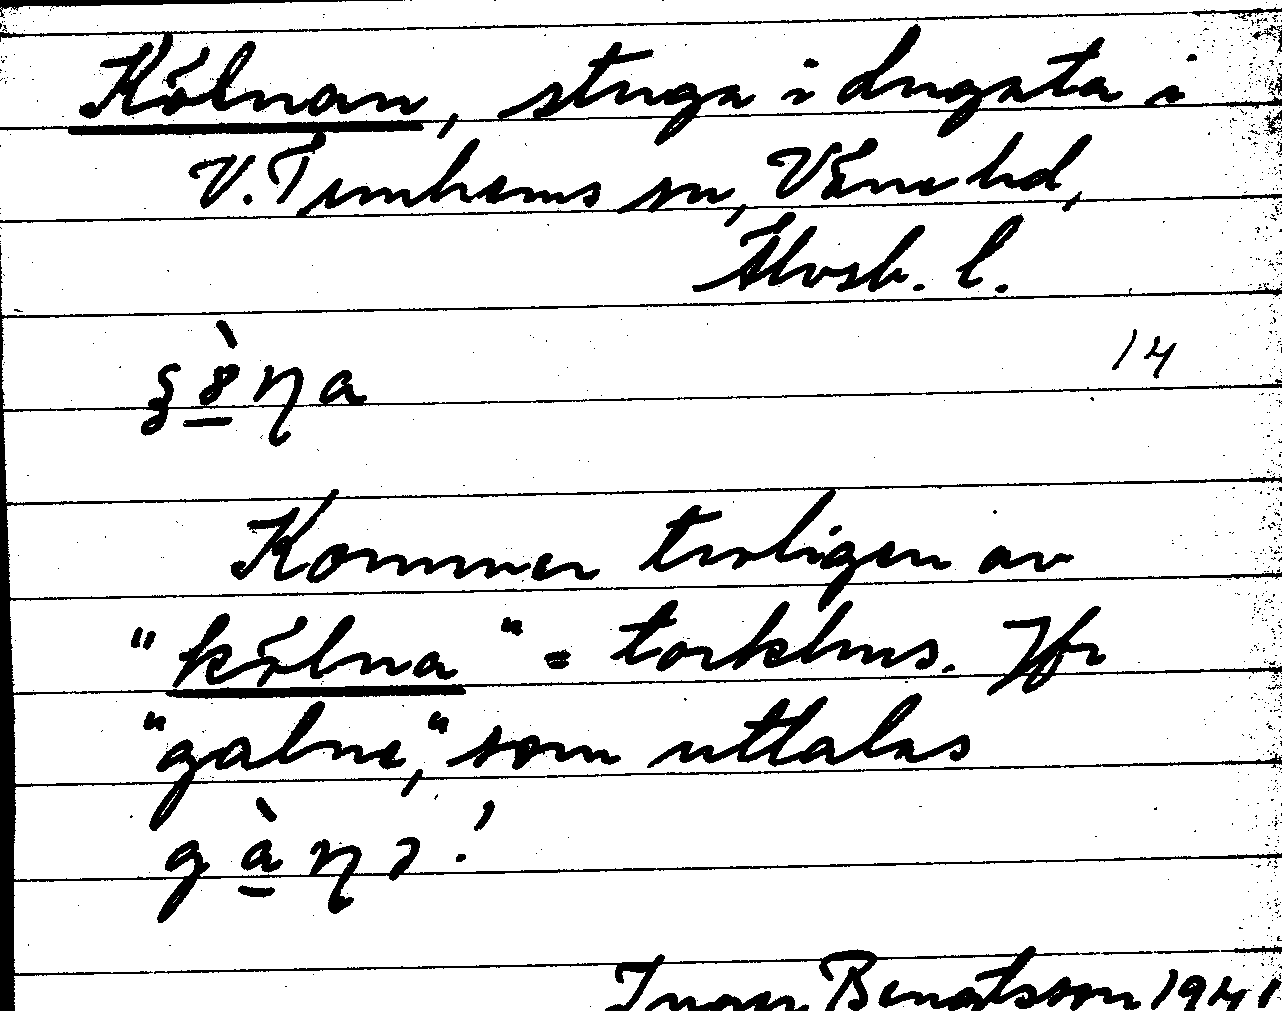 Kölnan, stuga i Lugnta i
V. Tunhems sn, Väne hd,
Älvsb. l.
14
ʂ8̀ɳa
Kommer troligen av
"kölna" = torkhus. Jfr
"galne," som uttalas
gàɳə!
Ivan Bengtsson 1941